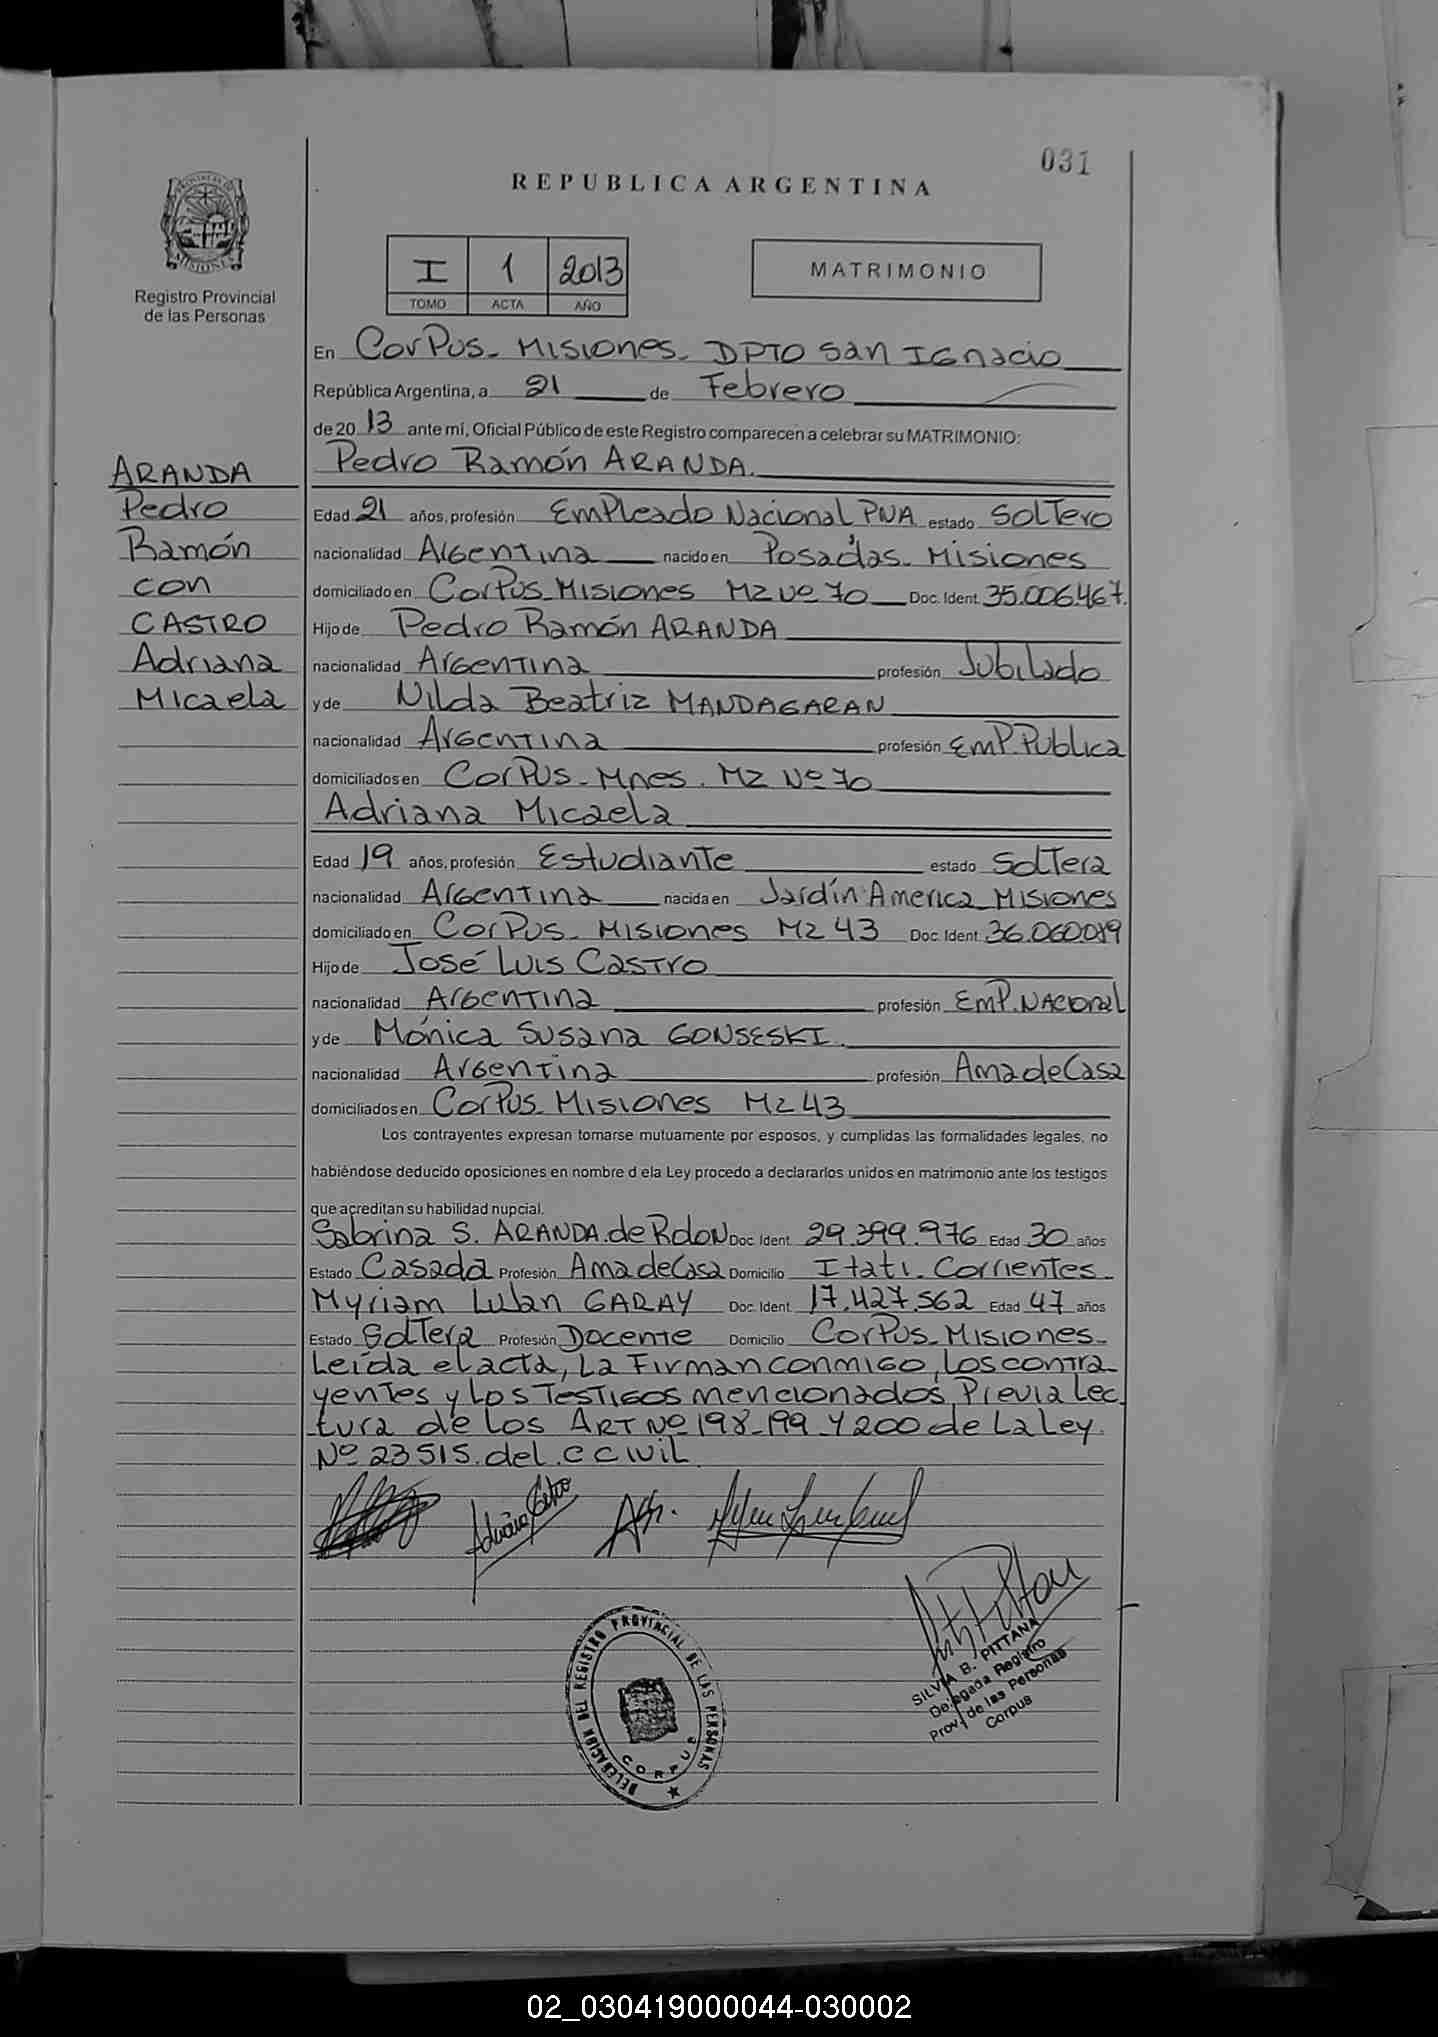 031
REPUBLICA ARGENTINA
PROVINCIA DE
MISIONES
Registro Provincial
de las Personas
I 1 2013
TOMO ACTA AÑO
MATRIMONIO
En Corpus_ Misiones_ DPTO San Ignacio
República Argentina, a 21 de Febrero
de 20 13 ante mí, Oficial Público de este Registro comparecen a celebrar su MATRIMONIO:
Pedro Ramón ARANDA.
ARANDA
Pedro
Ramón
con
CASTRO
Adriana
Micaela
Edad 21 años, profesión Empleado Nacional PNA estado Soltero
nacionalidad Argentina nacido en Posadas_ Misiones
domiciliado en Corpus_Misiones Mz Nº 70 Doc. Ident. 35.006.467.
Hijo de Pedro Ramón ARANDA
nacionalidad Argentina profesión Jubilado
y de Nilda Beatriz MANDAGARAN
nacionalidad Argentina profesión Emp. Publica
domiciliados en Corpus_ Mnes. Mz Nº 70
Adriana Micaela
Edad 19 años, profesión Estudiante estado Soltera
nacionalidad Argentina nacida en Jardín America_Misiones
domiciliado en Corpus_ Misiones Mz 43 Doc. Ident. 36.060.089
Hijo de José Luis Castro
nacionalidad Argentina profesión Emp. Nacional
y de Mónica Susana GONSESKI.
nacionalidad Argentina profesión Ama de Casa
domiciliados en Corpus_ Misiones Mz 43
Los contrayentes expresan tomarse mutuamente por esposos, y cumplidas las formalidades legales, no
habiéndose deducido oposiciones en nombre d ela Ley procedo a declararlos unidos en matrimonio ante los testigos
que acreditan su habilidad nupcial.
Sabrina S. ARANDA de Rolon Doc. Ident. 29.399.976 Edad 30 años
Estado Casada Profesión Ama de Casa Domicilio Itati_ Corrientes_
Myriam Lujan GARAY Doc. Ident. 17.427.562 Edad 47 años
Estado Soltera Profesión Docente Domicilio Corpus_Misiones_
Leída el acta, La Firman conmigo, Los contra_
yentes y Los Testigos mencionados, Previa Lec_
tura de Los ART Nº 198_199_Y 200 de La Ley.
Nº 23515. del. C Civil.
Adriana Castro
SILVIA B. PITTANA
Delegada Registro
Prov. de las Personas
Corpus
DELEGACION DEL REGISTRO PROVINCIAL DE LAS PERSONAS
CORPUS
02_030419000044-030002